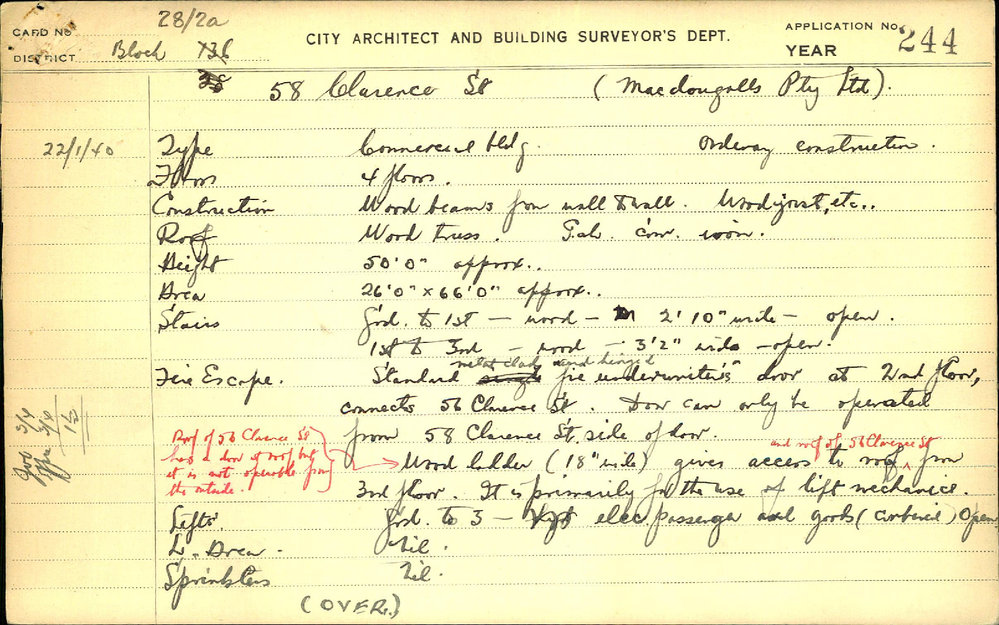 28/2a
CARD No
DISTRICT Block 136
CITY ARCHITECT AND BUILDING SURVEYOR'S DEPT.
APPLICATION No. 244
YEAR
58 Clarence St (Macdougalls Pty Ltd).
22/1/40 Type Commercial bldg. Ordinary construction.
Floors 4 floors.
Construction Wood beams from wall to wall. Wood joist, etc..
Roof Wood truss. Gal. corr. iron.
Height 50'0" approx..
Area 26'0" x 66'0" approx..
Stairs Grd. to 1st – wood – 2'10" wide – open.
1st to 3rd – wood – 3'2" wide – open.
metal clad and hinged
Fire Escape. Standard single fire underwriter's door at 2nd floor,
connects 56 Clarence St. Door can only be operated
from 58 Clarence St. side of door.
Roof of 56 Clarence St
has a door at roof but
it is not operable from
the outside.
and roof of 56 Clarence St
Wood ladder (18" wide) gives access to roof from
3rd floor. It is primarily for the use of lift mechanics.
Lifts Grd. to 3 – elec. passenger and goods (combined) Open
L. Area. Nil.
Sprinklers Nil.
(OVER.)